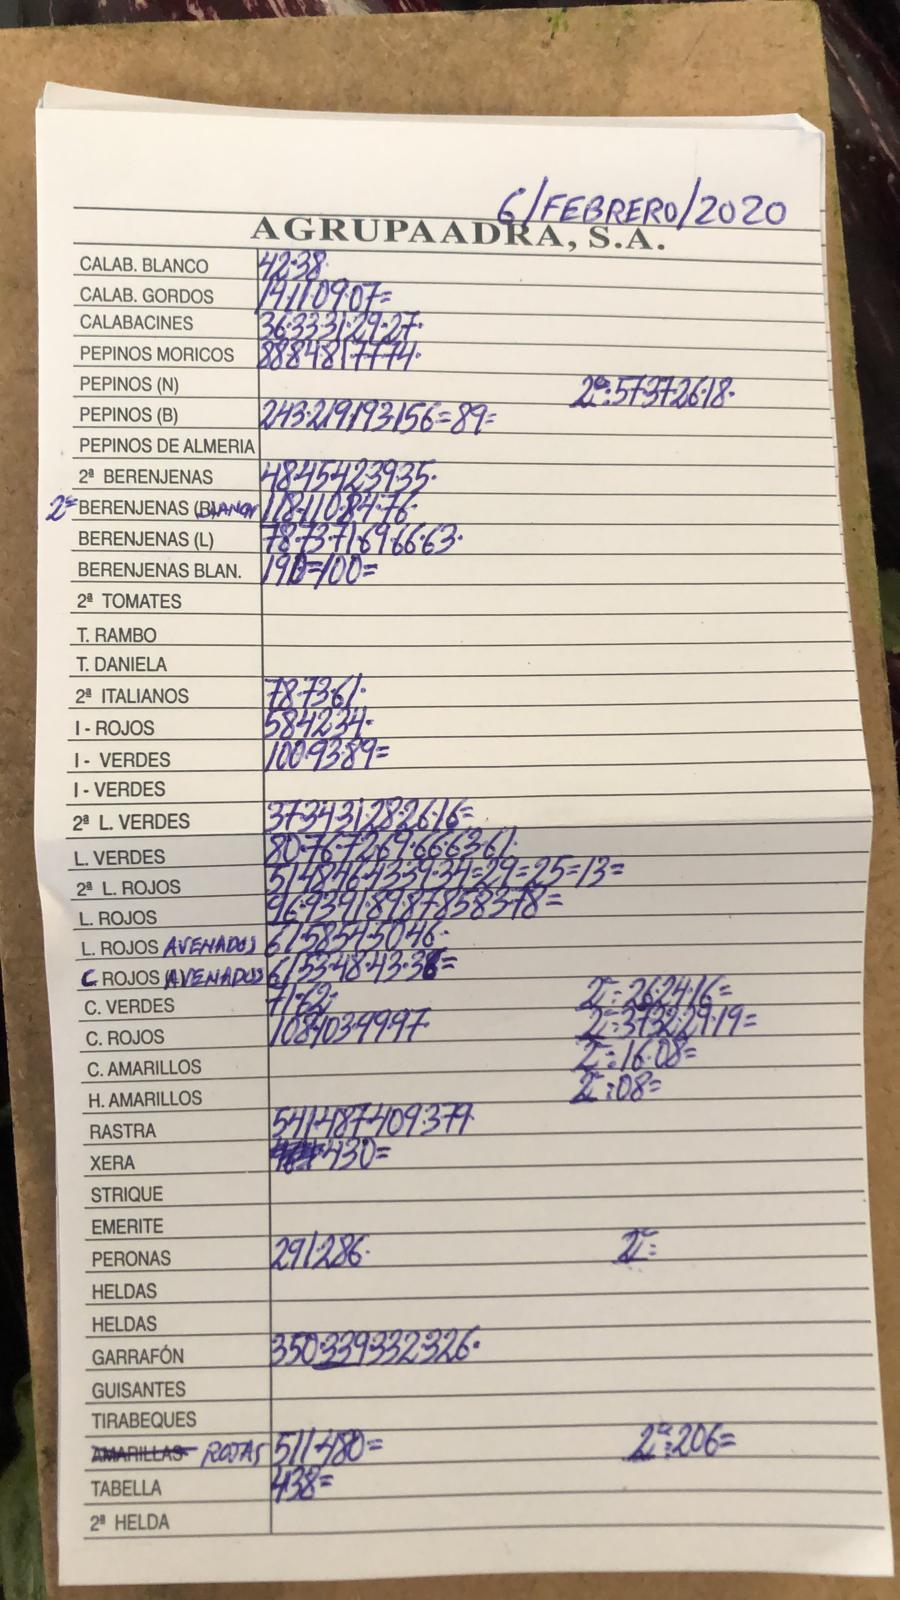 6/FEBRERO/2020
AGRUPAADRA, S.A.
CALAB. BLANCO 42·38·
CALAB. GORDOS 19·11·09·07=
CALABACINES 36·33·31·29·27·
PEPINOS MORICOS 88·84·81·77·74·
PEPINOS (N) 2ª:57·37·26·18·
PEPINOS (B) 243·219·193·156=89=
PEPINOS DE ALMERIA
2ª BERENJENAS 48·45·42·39·35·
2ª BERENJENAS (BLANCA) 118·110·84·76·
BERENJENAS (L) 78·73·71·69·66·63·
BERENJENAS BLAN. 190=100=
2ª TOMATES
T. RAMBO
T. DANIELA
2ª ITALIANOS 78·73·61·
I - ROJOS 58·42·34·
I - VERDES 100·93·89=
I - VERDES
2ª L. VERDES 37·34·31·28·26·16=
L. VERDES 80·76·72·69·66·63·61·
2ª L. ROJOS 51·48·46·43·39·34=29=25=13=
L. ROJOS 96·93·91·89·87·85·83·78=
L. ROJOS AVENADOS 61·58·54·50·46·
C ROJOS (AVENADOS) 61·53·48·43·38=
C. VERDES 71·62· 2ª:26·24·16=
C. ROJOS 108·103·99·97· 2ª:37·32·29·19=
C. AMARILLOS 2ª:16·08=
H. AMARILLOS 2ª:08=
RASTRA 541·487·409·379·
XERA 430=
STRIQUE
EMERITE
PERONAS 291·286· 2ª:
HELDAS
HELDAS
GARRAFÓN 350·339·332·326·
GUISANTES
TIRABEQUES
AMARILLAS ROJAS 511·480= 2ª:206=
TABELLA 438=
2ª HELDA